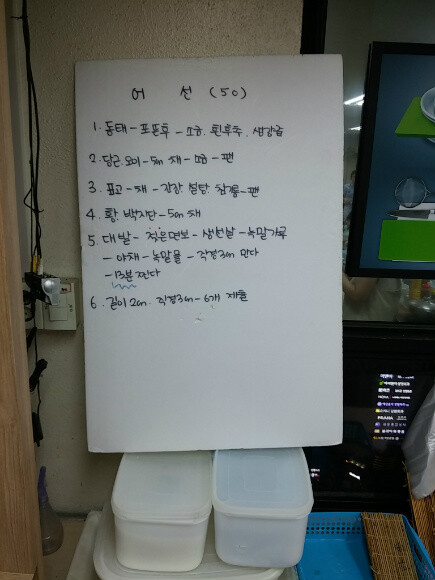 어 선 (50)
1. 동태 - 포뜬후 - 소금. 흰후추. 생강즙
2. 당근. 오이 - 5cm 채 - 소금 - 팬
3. 표고 - 채 - 간장 설탕 참기름 - 팬
4. 황. 백지단 - 5cm 채
5. 대발 - 젖은면보 - 생선살 - 녹말가루
- 야채 - 녹말물 - 직경 3cm 만다
- 13분 찐다
6. 길이 2cm. 직경 3cm - 6개 제출
PRANA